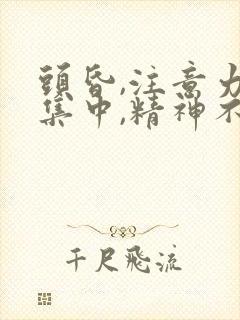 頭昏,注意力
集中,精神不
千尺飛流